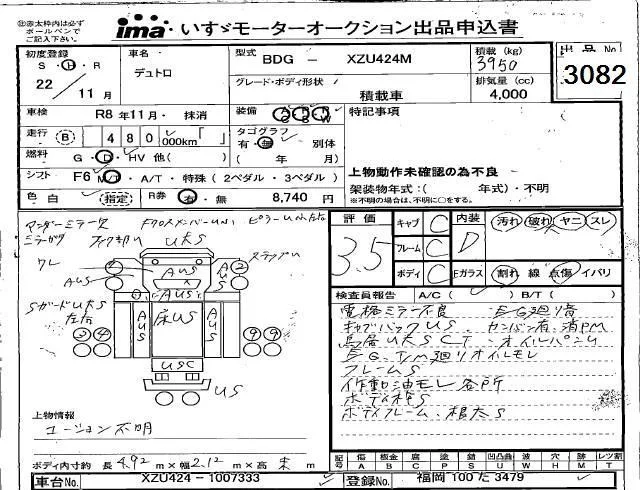 ㊟赤太枠内は必ず
ボールペンで
ご記入下さい。
ima いすゞモーターオークション出品申込書
初度登録 S・H・R 22 / 11 月
車名 デュトロ
型式 BDG － XZU424M
グレード・ボディ形状 積載車
積載 (kg) 3950
排気量 (cc) 4,000
出品No 3082
車検 R8 年 11 月・ 抹消
装備 A/C P/S P/W
特記事項
走行 (B) 480,000km「 」
タコグラフ 有・無 別体 ( 年 月)
燃料 G・D・HV 他( )
上物動作未確認の為不良
シフト F6 M/T・A/T・特殊 (2ペダル・3ペダル)
架装物年式:( 年式)・不明
※不明の場合は、不明に○をする。
色 白 (指定) R券 有・無 8,740 円
アンダーミラー欠
ミラーガク
ワレ
AUS
UカS
ステップU
AUS
AUS
AUS
床US
AUS
Sガード UカS
左右
USC
US
評価 3.5
キャブ C
フレーム C
ボディ C
内装 D
Eガラス
汚れ 破れ ヤニ スレ
割れ 線 点傷 イバリ
検査員報告 A/C ( ) B/T ( )
電格ミラー不良 E/G廻り音
キャブバックUS、センバン有、消PM
鳥居UカSCT オイルパンU
E/G、T/M廻りオイルモレ
フレームS
作動油モレ各所
ボディ枠S
ボディフレーム、根太S
上物情報
ユーション不明
ボディ内寸約 長 4.92 m×幅 2.12 m×高 未 m
記号 傷 A 板金 B 腐 C 塗 P 錆 S 凹凸曲 U 波 W 穴 H 跡 M レツ割 T
車台No. XZU424－1007333
登録No. 福岡 100 た 3479